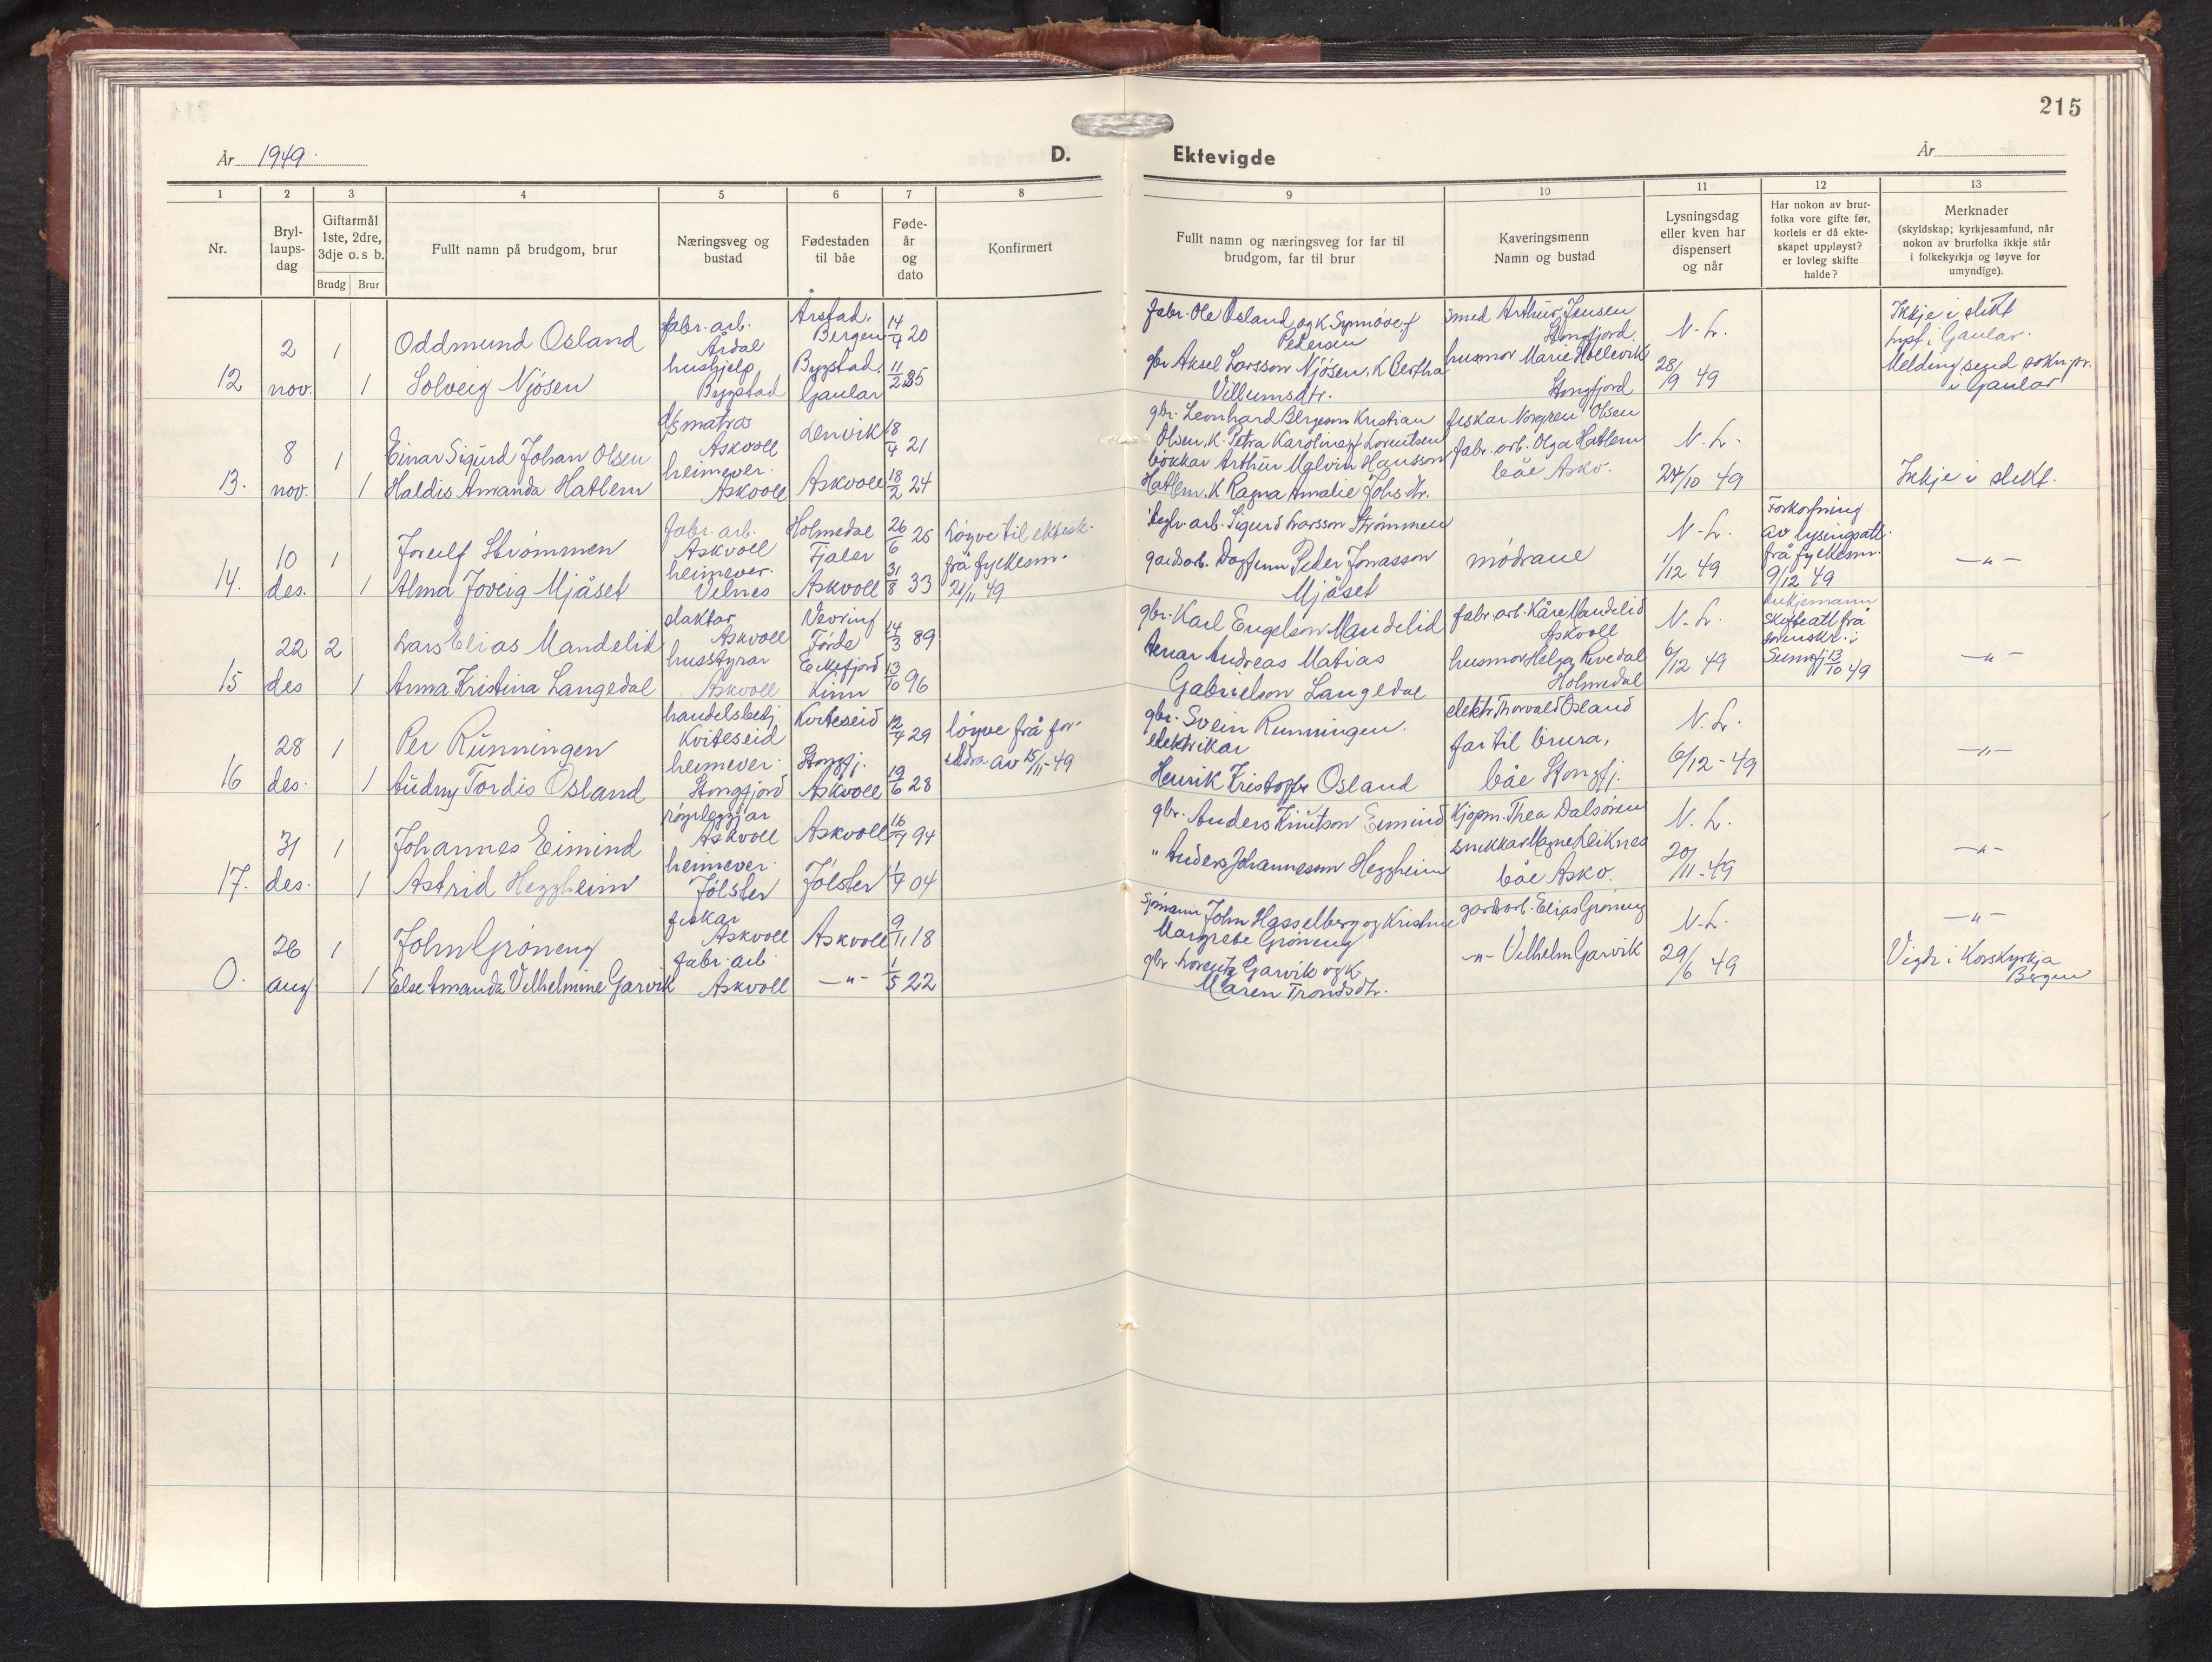 215
År 1949.
D.
Ektevigde
År
1
2
3
4
5
6
7
8
9
10
11
12
13
Nr.
Bryl-
laups-
dag
Giftarmål
1ste, 2dre,
3dje o.s b.
Brudg
Brur
Fullt namn på brudgom, brur
Næringsveg og
bustad
Fødestaden
til båe
Føde-
år
og
dato
Konfirmert
Fullt namn og næringsveg for far til
brudgom, far til brur
Kaveringsmenn
Namn og bustad
Lysningsdag
eller kven har
dispensert
og når
Har nokon av brur-
folka vore gifte før,
korleis er då ekte-
skapet uppløyst?
er lovleg skifte
halde?
Merknader
(skyldskap; kyrkjesamfund, når
nokon av brurfolka ikkje står
i folkekyrkja og løyve for
umyndige).
12
2
nov.
1
1
Oddmund Osland
Solveig Njøsen
fabr. arb.
Årdal
hushjelp
Bygstad
Årstad,
Bergen
Bygstad,
Gaular
14/7 20
11/2 25
fabr. Ole Osland og K. Synnøve f
Pedersen
gbr Aksel Larsson Njøsen, K. Bertha
Villumsdtr.
smed Arthur Jensen
Stongfjord.
husmor Marie Hellevik
Stongfjord
N. L.
28/9 49
Ikkje i slekt
lyst i Gaular.
Melding send soknpr.
i Gaular
13.
8
nov.
1
1
Einar Sigurd Johan Olsen
Haldis Amanda Hatlem
d/s matros
Askvoll
heimever.
Askvoll
Lenvik
Askvoll
18/4 21
18/2 24
gbr. Leonhard Bergem Kristian
Olsen, K. Petra Karoline f. Lorentsen
bøkkar Arthur Malvin Hansson
Hatlem, K Ragna Amalie Johsdtr.
fiskar Norgren Olsen
fabr. arb. Olga Hatlem
båe Askv.
N. L.
24/10 49
Ikkje i slekt.
14.
10
des.
1
1
Joreulf Strømmen
Alma Joveig Mjåset
fabr. arb.
Askvoll
heimever.
Velnes
Holmedal
Fjaler
Askvoll
26/6 25
31/8 33
Løyve til ektesk.
frå fylkesm.
21/11 49
Sigurd Larsson Strømmen
gardsarb. Dagfinn Peder Jonasson
Mjåset
mødrane
N. L.
1/12 49
Forkortning
av lysingsatt.
frå fylkesm.
9/12 49
—"—
15
22
des
2
1
Lars Elias Mandelid
Anna Kristina Langedal
slaktar
Askvoll
husstyrar
Askvoll
Vevring
Førde
Eikefjord
Kinn
14/3 89
13/10 96
gbr. Karl Engelson Mandelid
Andreas Matias
Gabrielson Langedal
fabr. arb. Kåre Mandelid
Askvoll
husmor Helga Rivedal
Holmedal
N. L.
6/12 49
enkjemann
Skifteatt frå
sorenskr. i
Sunnfj 13/10 49
—"—
16
28
des.
1
1
Per Runningen
Audny Tordis Osland
handelsbetj.
Kviteseid
heimever.
Stongfjord
Kviteseid
Stongfj.
Askvoll
12/4 29
19/6 28
løyve frå for-
eldra av 15/11-49
gbr. Svein Runningen.
elektrikar
Henrik Kristoffer Osland
elektr. Thorvald Osland
far til brura,
båe Stongfj.
N. L.
6/12-49
—"—
17.
31
des.
1
1
Johannes Eimind
Astrid Heggheim
røyrleggjar
Askvoll
heimever.
Jølster
Askvoll
Jølster
16/7 94
1/7 04
gbr. Anders Knutson Eimind
" Anders Johanneson Heggheim
Kjøpm. Thea Dalsøren
snikkar Magne Leiknes
båe Askv.
N. L.
20/11-49
—"—
0.
26
aug
1
1
John Grøneng
Else Amanda Vilhelmine Garvik
fiskar
Askvoll
fabr. arb.
Askvoll
Askvoll
—"—
9/11 18
1/5 22
sjømann John Hasselberg og Kristine
Margrete Grøneng
gbr Lorentz Garvik og K.
Maren Trondsdtr.
gardsarb. Elias Grøneng
—"— Vilhelm Garvik
N. L.
29/6 49
—"—
Vigde i Korskyrkja
Bergen